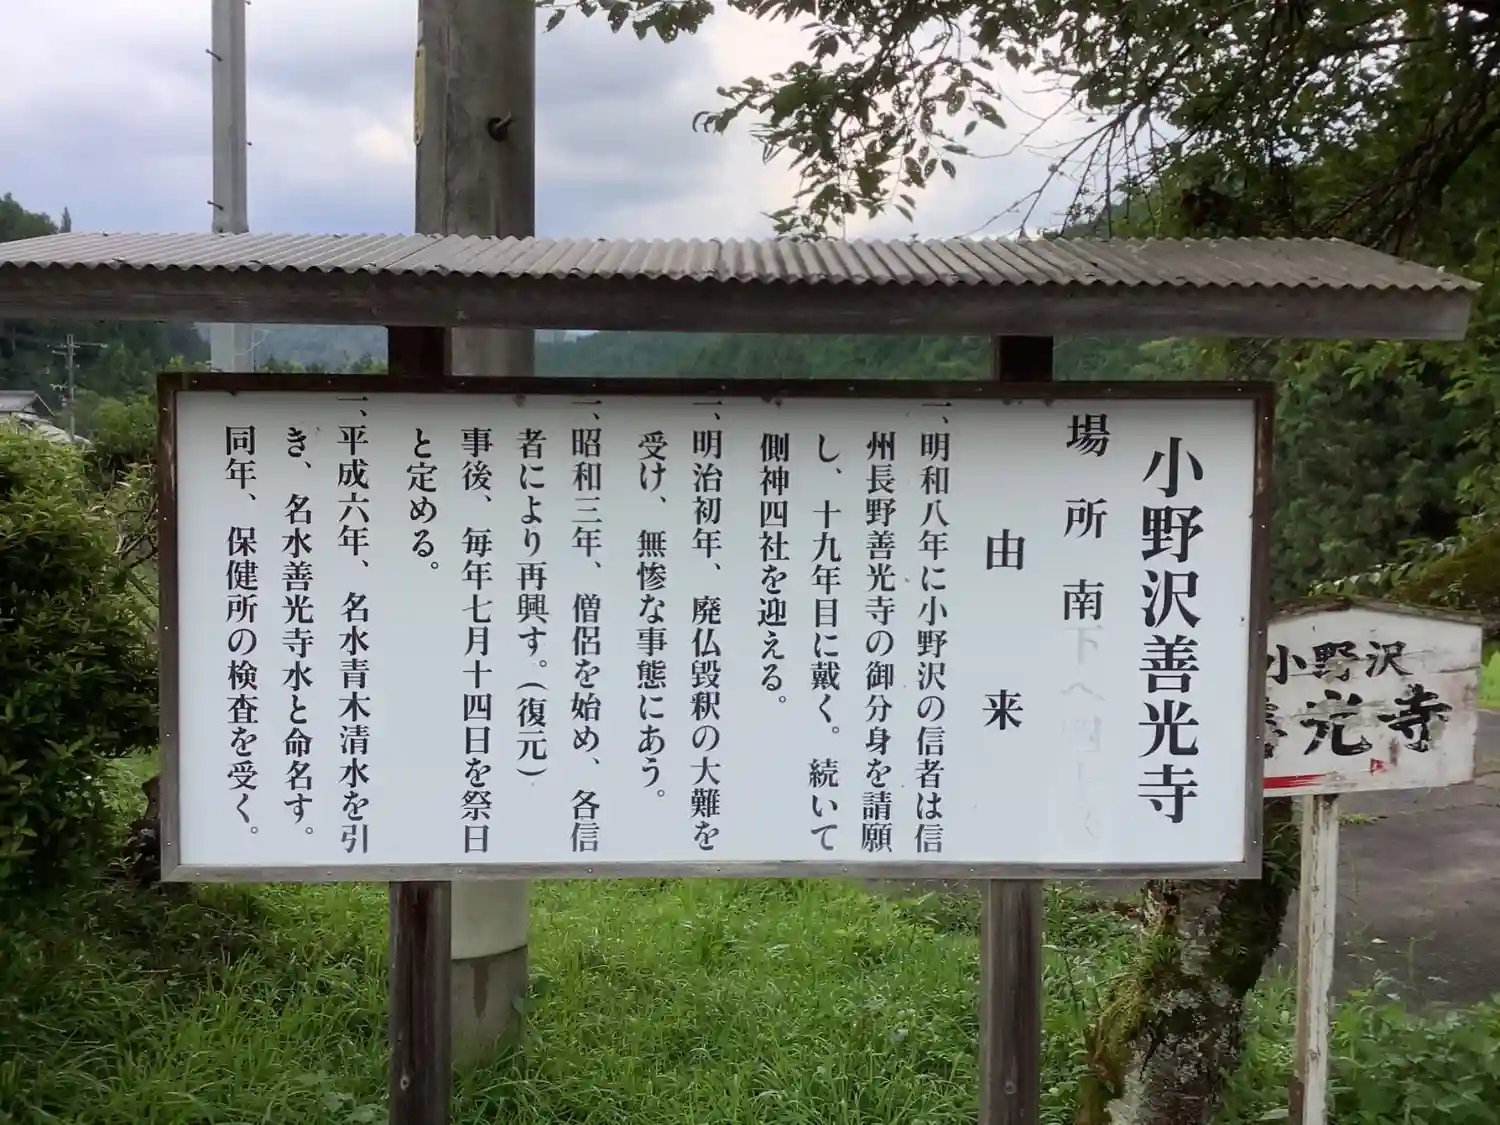 小野沢善光寺
場所南下へ
由来
一、明和八年に小野沢の信者は信
州長野善光寺の御分身を請願
し、十九年目に戴く。続いて
側神四社を迎える。
一、明治初年、廃仏毀釈の大難を
受け、無惨な事態にあう。
一、昭和三年、僧侶を始め、各信
者により再興す。(復元)
事後、毎年七月十四日を祭日
と定める。
一、平成六年、名水青木清水を引
き、名水善光寺水と命名す。
同年、保健所の検査を受く。
小野沢
善光寺